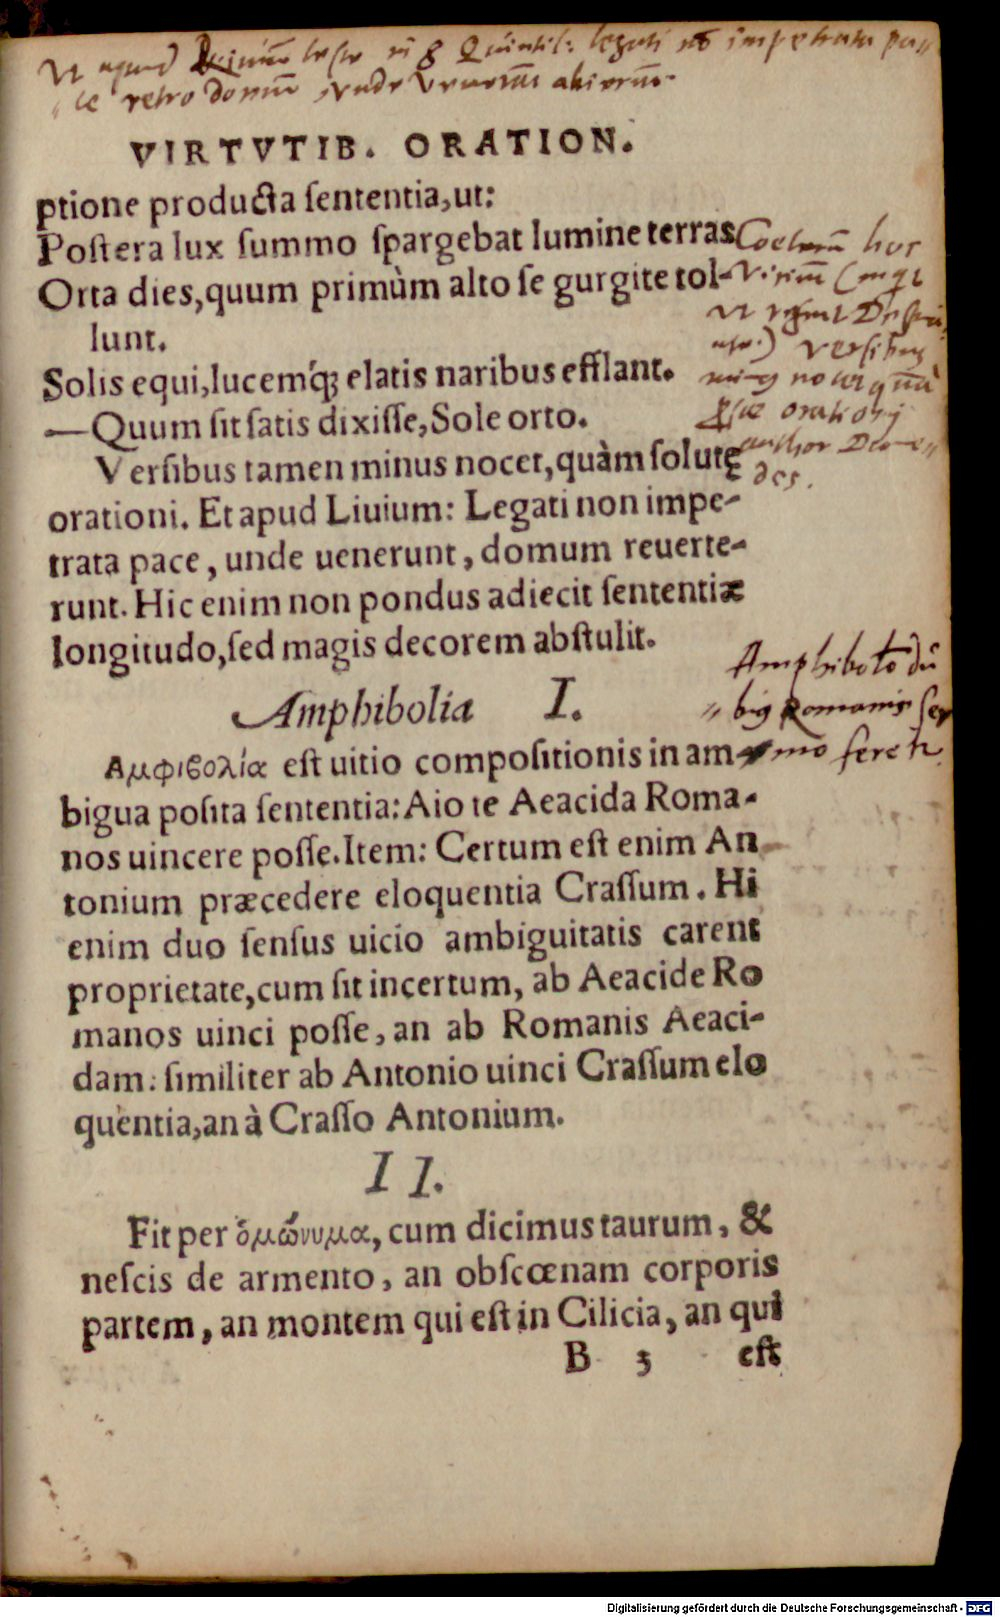 Ut apud Liuium teste in 8 Quintil: legati nō impetrata pa//
//ce retro domū, unde venerāt abierūt.
VIRTVTIB. ORATION.
ptione producta ſententia,ut:
Poſtera lux ſummo ſpargebat lumine terras
Orta dies,quum primùm alto ſe gurgite tol-
lunt.
Solis equi,lucemq́ꝫ elatis naribus efflant.
—Quum ſit ſatis dixiſſe,Sole orto.
Verſibus tamen minus nocet,quàm ſolutę
orationi. Et apud Liuium: Legati non impe-
trata pace, unde uenerunt, domum reuerte-
runt. Hic enim non pondus adiecit ſententiæ
longitudo,ſed magis decorem abſtulit.
Coeterū hoc
Vitium
ut
) verſibus
minus nocet quā
orationi
author Diome//
des.
Amphibolia I.
Αμφιβολία eſt uitio compoſitionis in am-
bigua poſita ſententia: Aio te Aeacida Roma-
nos uincere poſſe.Item: Certum eſt enim An
tonium præcedere eloquentia Craſſum. Hi
enim duo ſenſus uicio ambiguitatis carent
proprietate,cum ſit incertum, ab Aeacide Ro
manos uinci poſſe, an ab Romanis Aeaci-
dam: ſimiliter ab Antonio uinci Craſſum elo
quentia,an à Craſſo Antonium.
Amphibolō dū
// big Romanis ſer
mo fere
I I.
Fit per ὁμώνυμα, cum dicimus taurum, &
neſcis de armento, an obſcœnam corporis
partem, an montem qui eſt in Cilicia, an qui
B 3 eſt
Digitalisierung gefördert durch die Deutsche Forschungsgemeinschaft - DFG